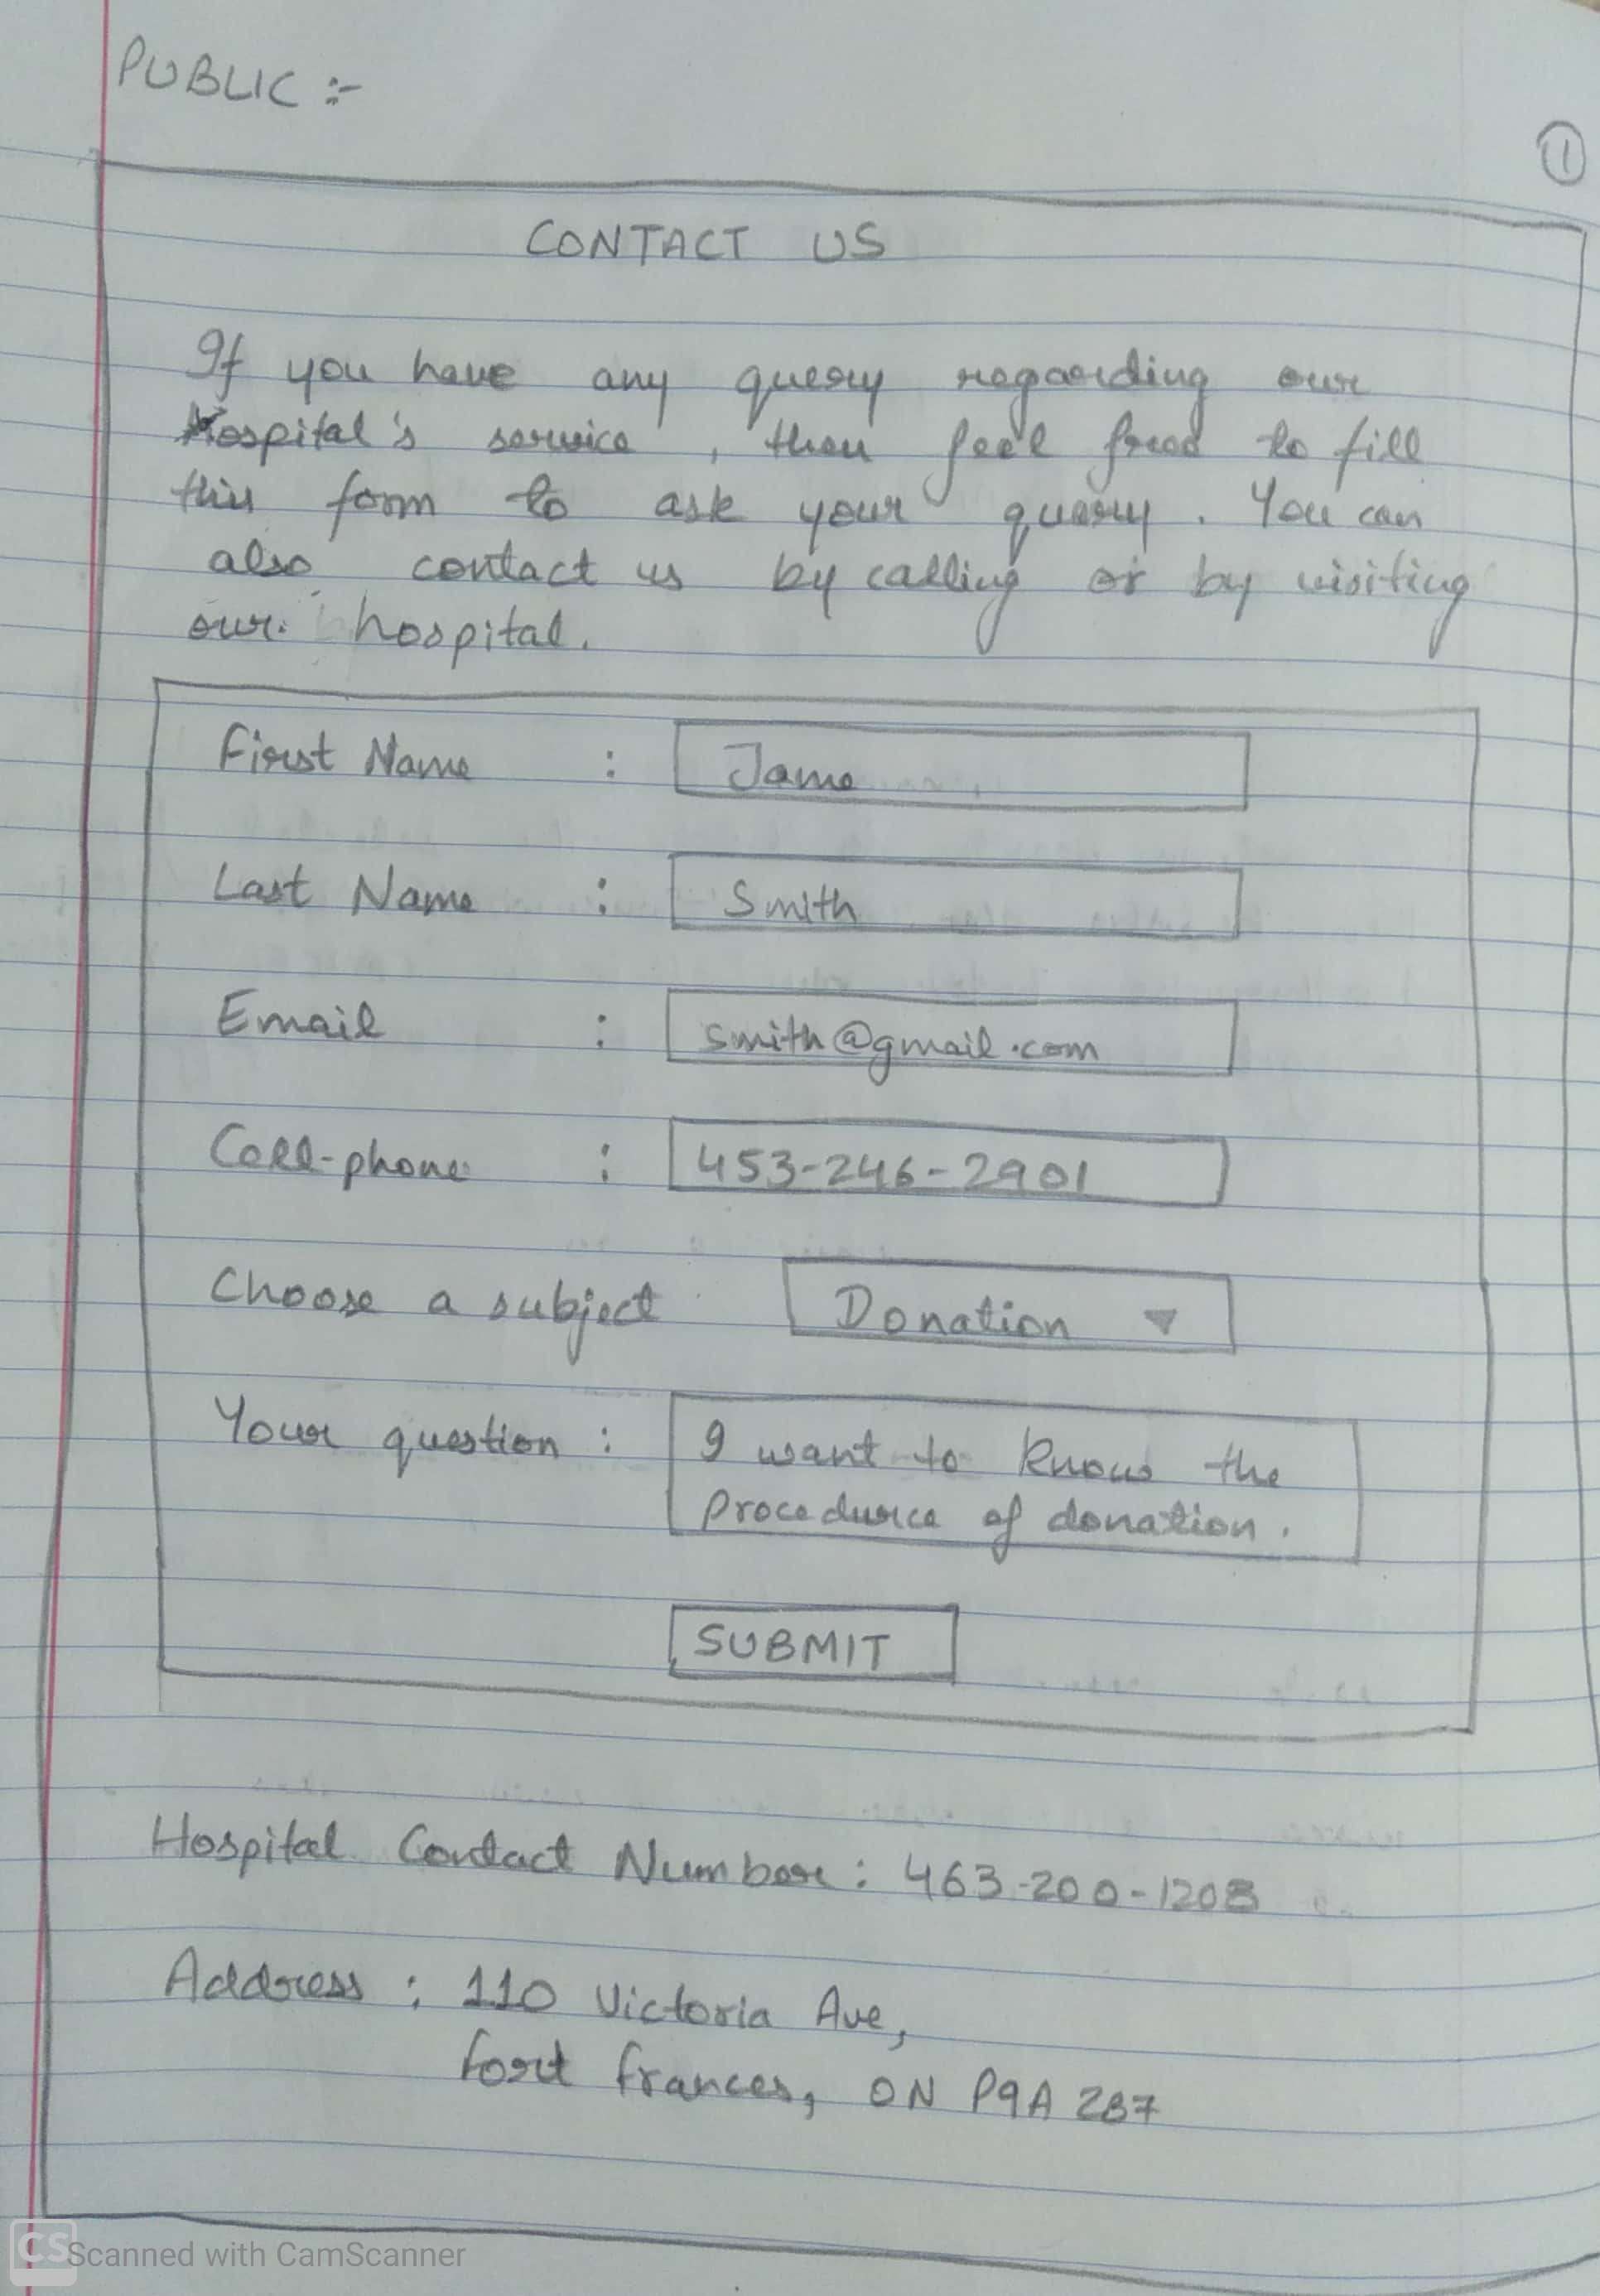 PUBLIC :-
1
CONTACT US
If you have any query regarding our
Hospital's service , then feel free to fill
this form to ask your query . You can
also contact us by calling or by visiting
our hospital.
First Name : Jame
Last Name : Smith
Email : smith@gmail.com
Cell-phone : 453-246-2901
Choose a subject Donation ▼
Your question : I want to know the
procedure of donation .
SUBMIT
Hospital Contact Number : 463-200-1208
Address : 110 Victoria Ave,
Fort Frances, ON P9A 2B7
CS Scanned with CamScanner